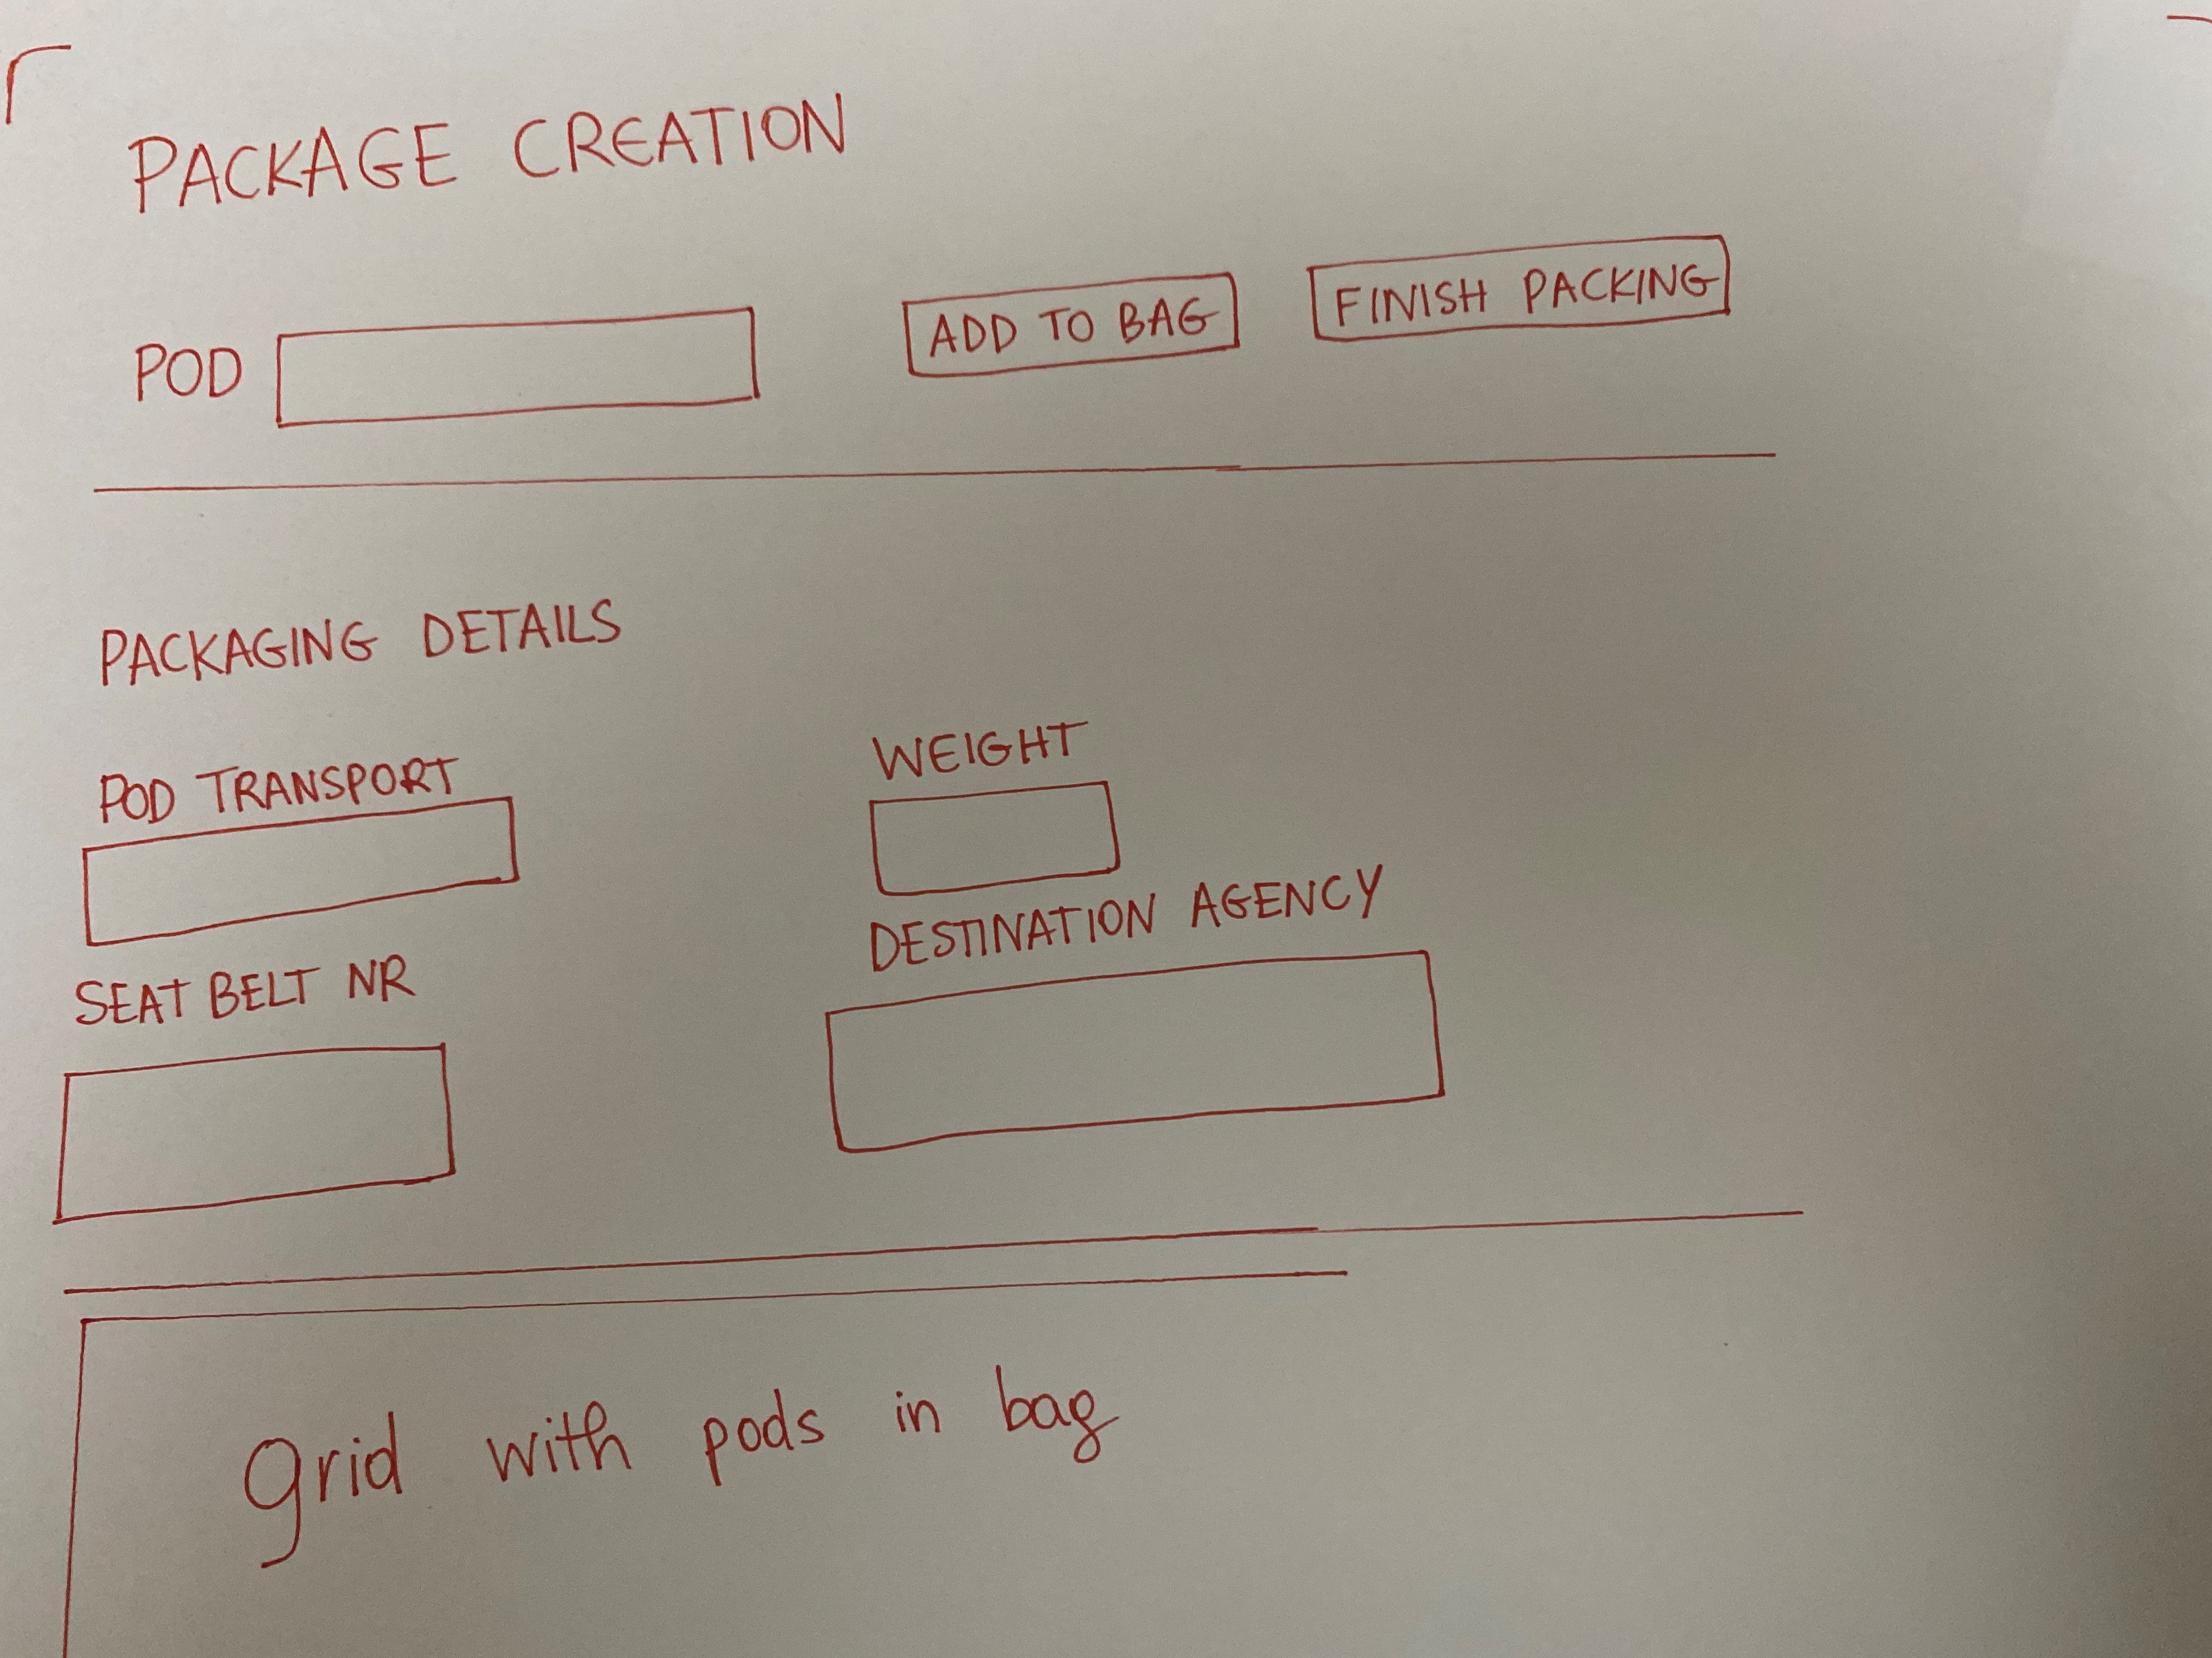 PACKAGE CREATION
POD ADD TO BAG FINISH PACKING
PACKAGING DETAILS
POD TRANSPORT WEIGHT
SEAT BELT NR DESTINATION AGENCY
grid with pods in bag